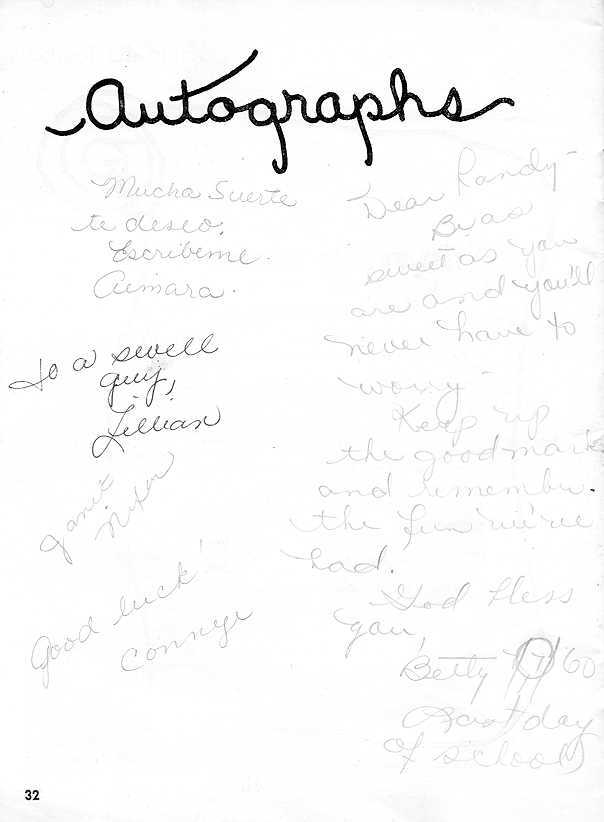 Autographs
Mucha Suerte
te deseo.
Escribeme.
Aimara.
to a swell
guy,
Lillian
Janet
Nixon
Good luck!
Connye
Dear Randy-
Be as
sweet as you
are and you'll
never have to
worry-
Keep up
the good marks
and remember
the fun we've
had.
God bless
you,
Betty '60
Last day
of school
32